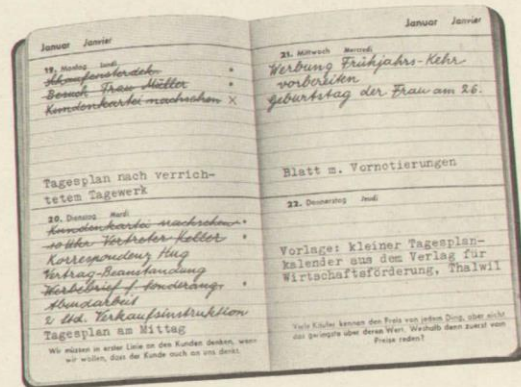 Januar Janvier
19. Montag Lundi
Schaufensterdek.
Besuch Frau Müller
Kundenkartei nachsehen ×
Tagesplan nach verrich-
tetem Tagewerk
20. Dienstag Mardi
Kundenkartei nachsehen
10 Uhr Vertreter Keller
Korrespondenz Hug
Vertrag-Beanstandung
Werbebrief f. Sonderang.
Abendarbeit
2 Std. Verkaufsinstruktion
Tagesplan am Mittag
Wir müssen in erster Linie an den Kunden denken, wenn
wir wollen, dass der Kunde auch an uns denkt.
Januar Janvier
21. Mittwoch Mercredi
Werbung Frühjahrs-Kehr
vorbereiten
Geburtstag der Frau am 26.
Blatt m. Vornotierungen
22. Donnerstag Jeudi
Vorlage: kleiner Tagesplan-
kalender aus dem Verlag für
Wirtschaftsförderung, Thalwil
Viele Käufer kennen den Preis von jedem Ding, aber nicht
das geringste über deren Wert. Weshalb denn zuerst vom
Preise reden?